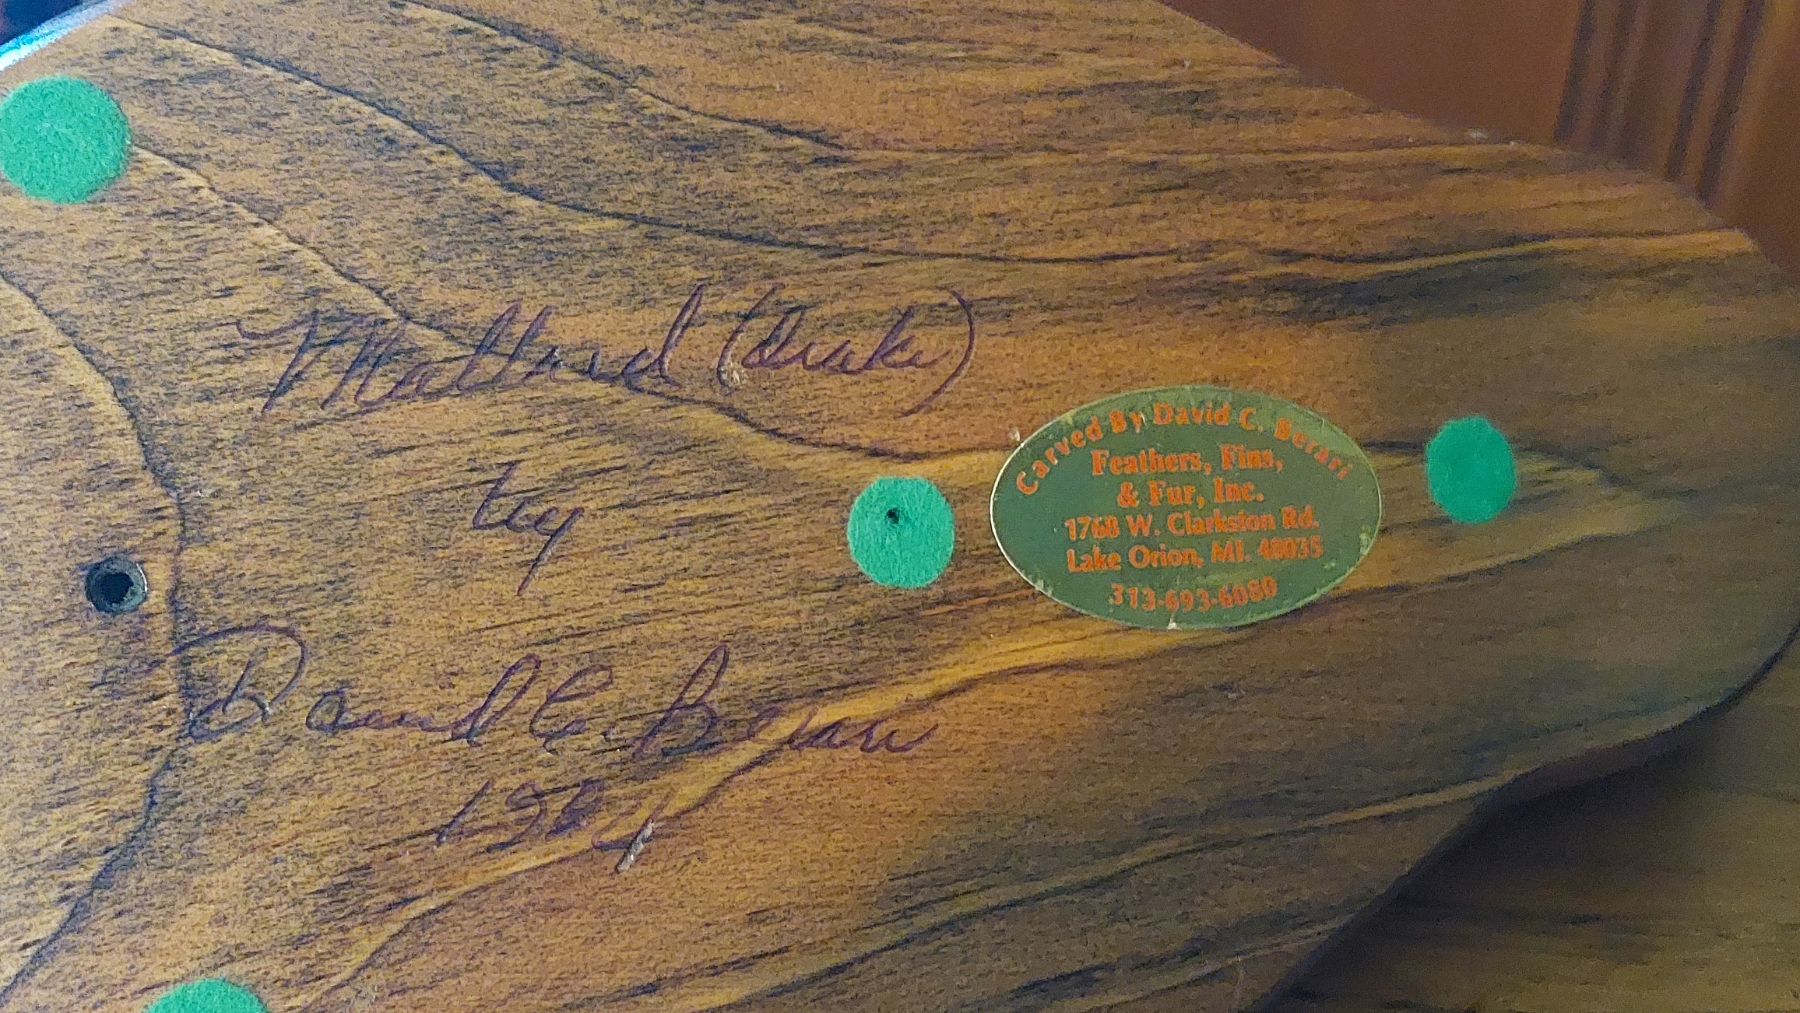 Mallard (Drake)
by
David C. Berari
1984
Carved By David C. Berari
Feathers, Fins,
& Fur, Inc.
1760 W. Clarkston Rd.
Lake Orion, MI. 48035
313-693-6080